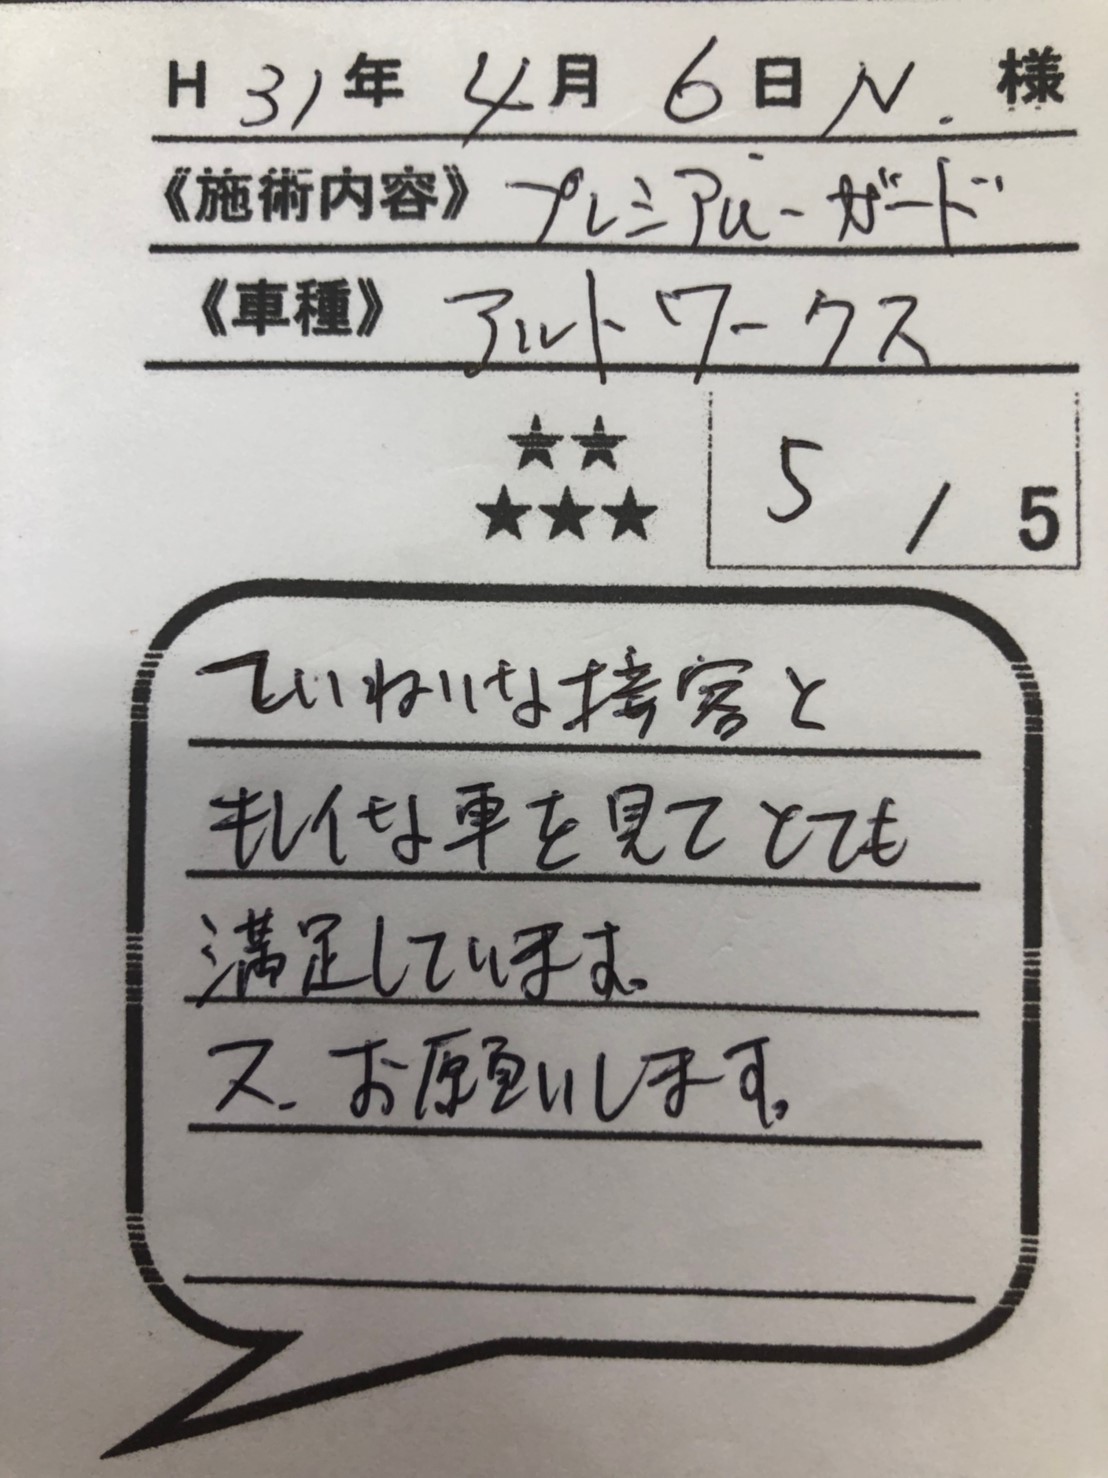 H 31年 4月 6日 N. 様
《施術内容》 プレミアム・ガード
《車種》 アルトワークス
★★
★★★
5 / 5
ていねいな接客と
キレイな車を見てとても
満足しています。
又、お願いします。